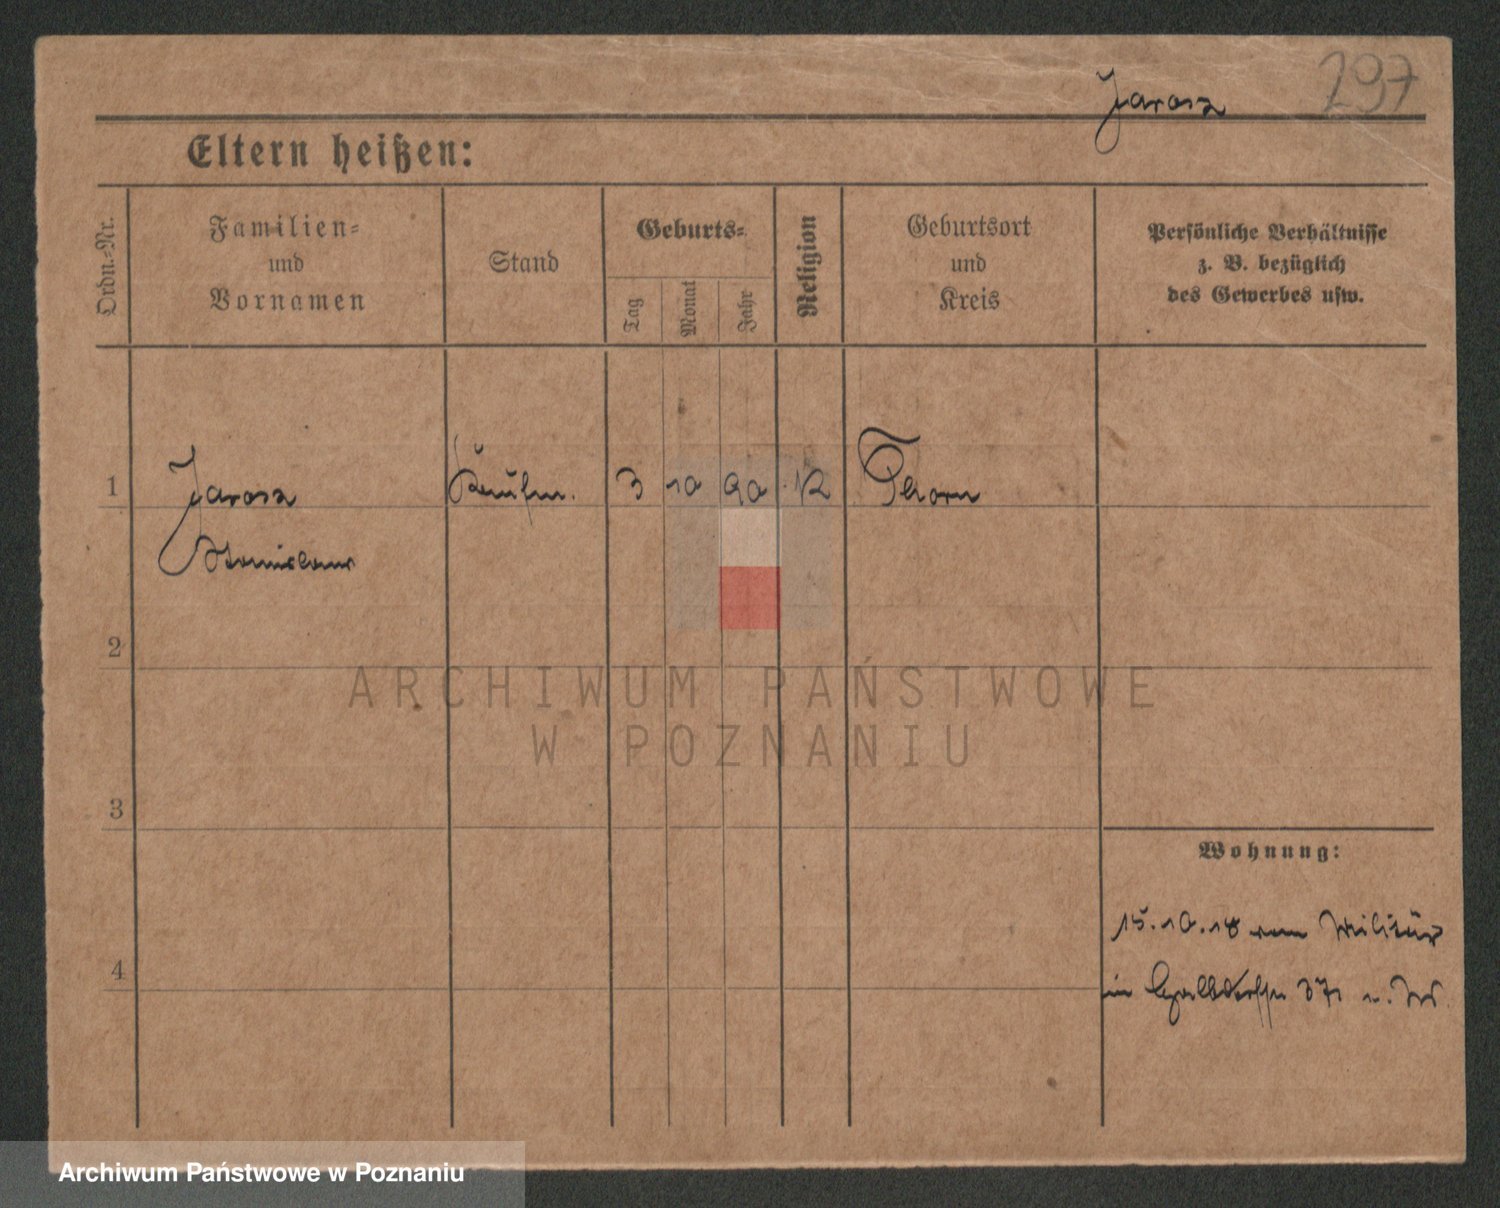 297
Jarosz
Eltern heißen:
Ordn.-Nr.
Familien-
und
Vornamen
Stand
Geburts-
Tag
Monat
Jahr
Religion
Geburtsort
und
Kreis
Persönliche Verhältnisse
z. B. bezüglich
des Gewerbes usw.
1
Jarosz
Kaufm.
3
10
90
K
Thorn
Stanislaus
2
ARCHIWUM PAŃSTWOWE
W POZNANIU
3
Wohnung:
15.10.18 vom Militär
4
in
Archiwum Państwowe w Poznaniu